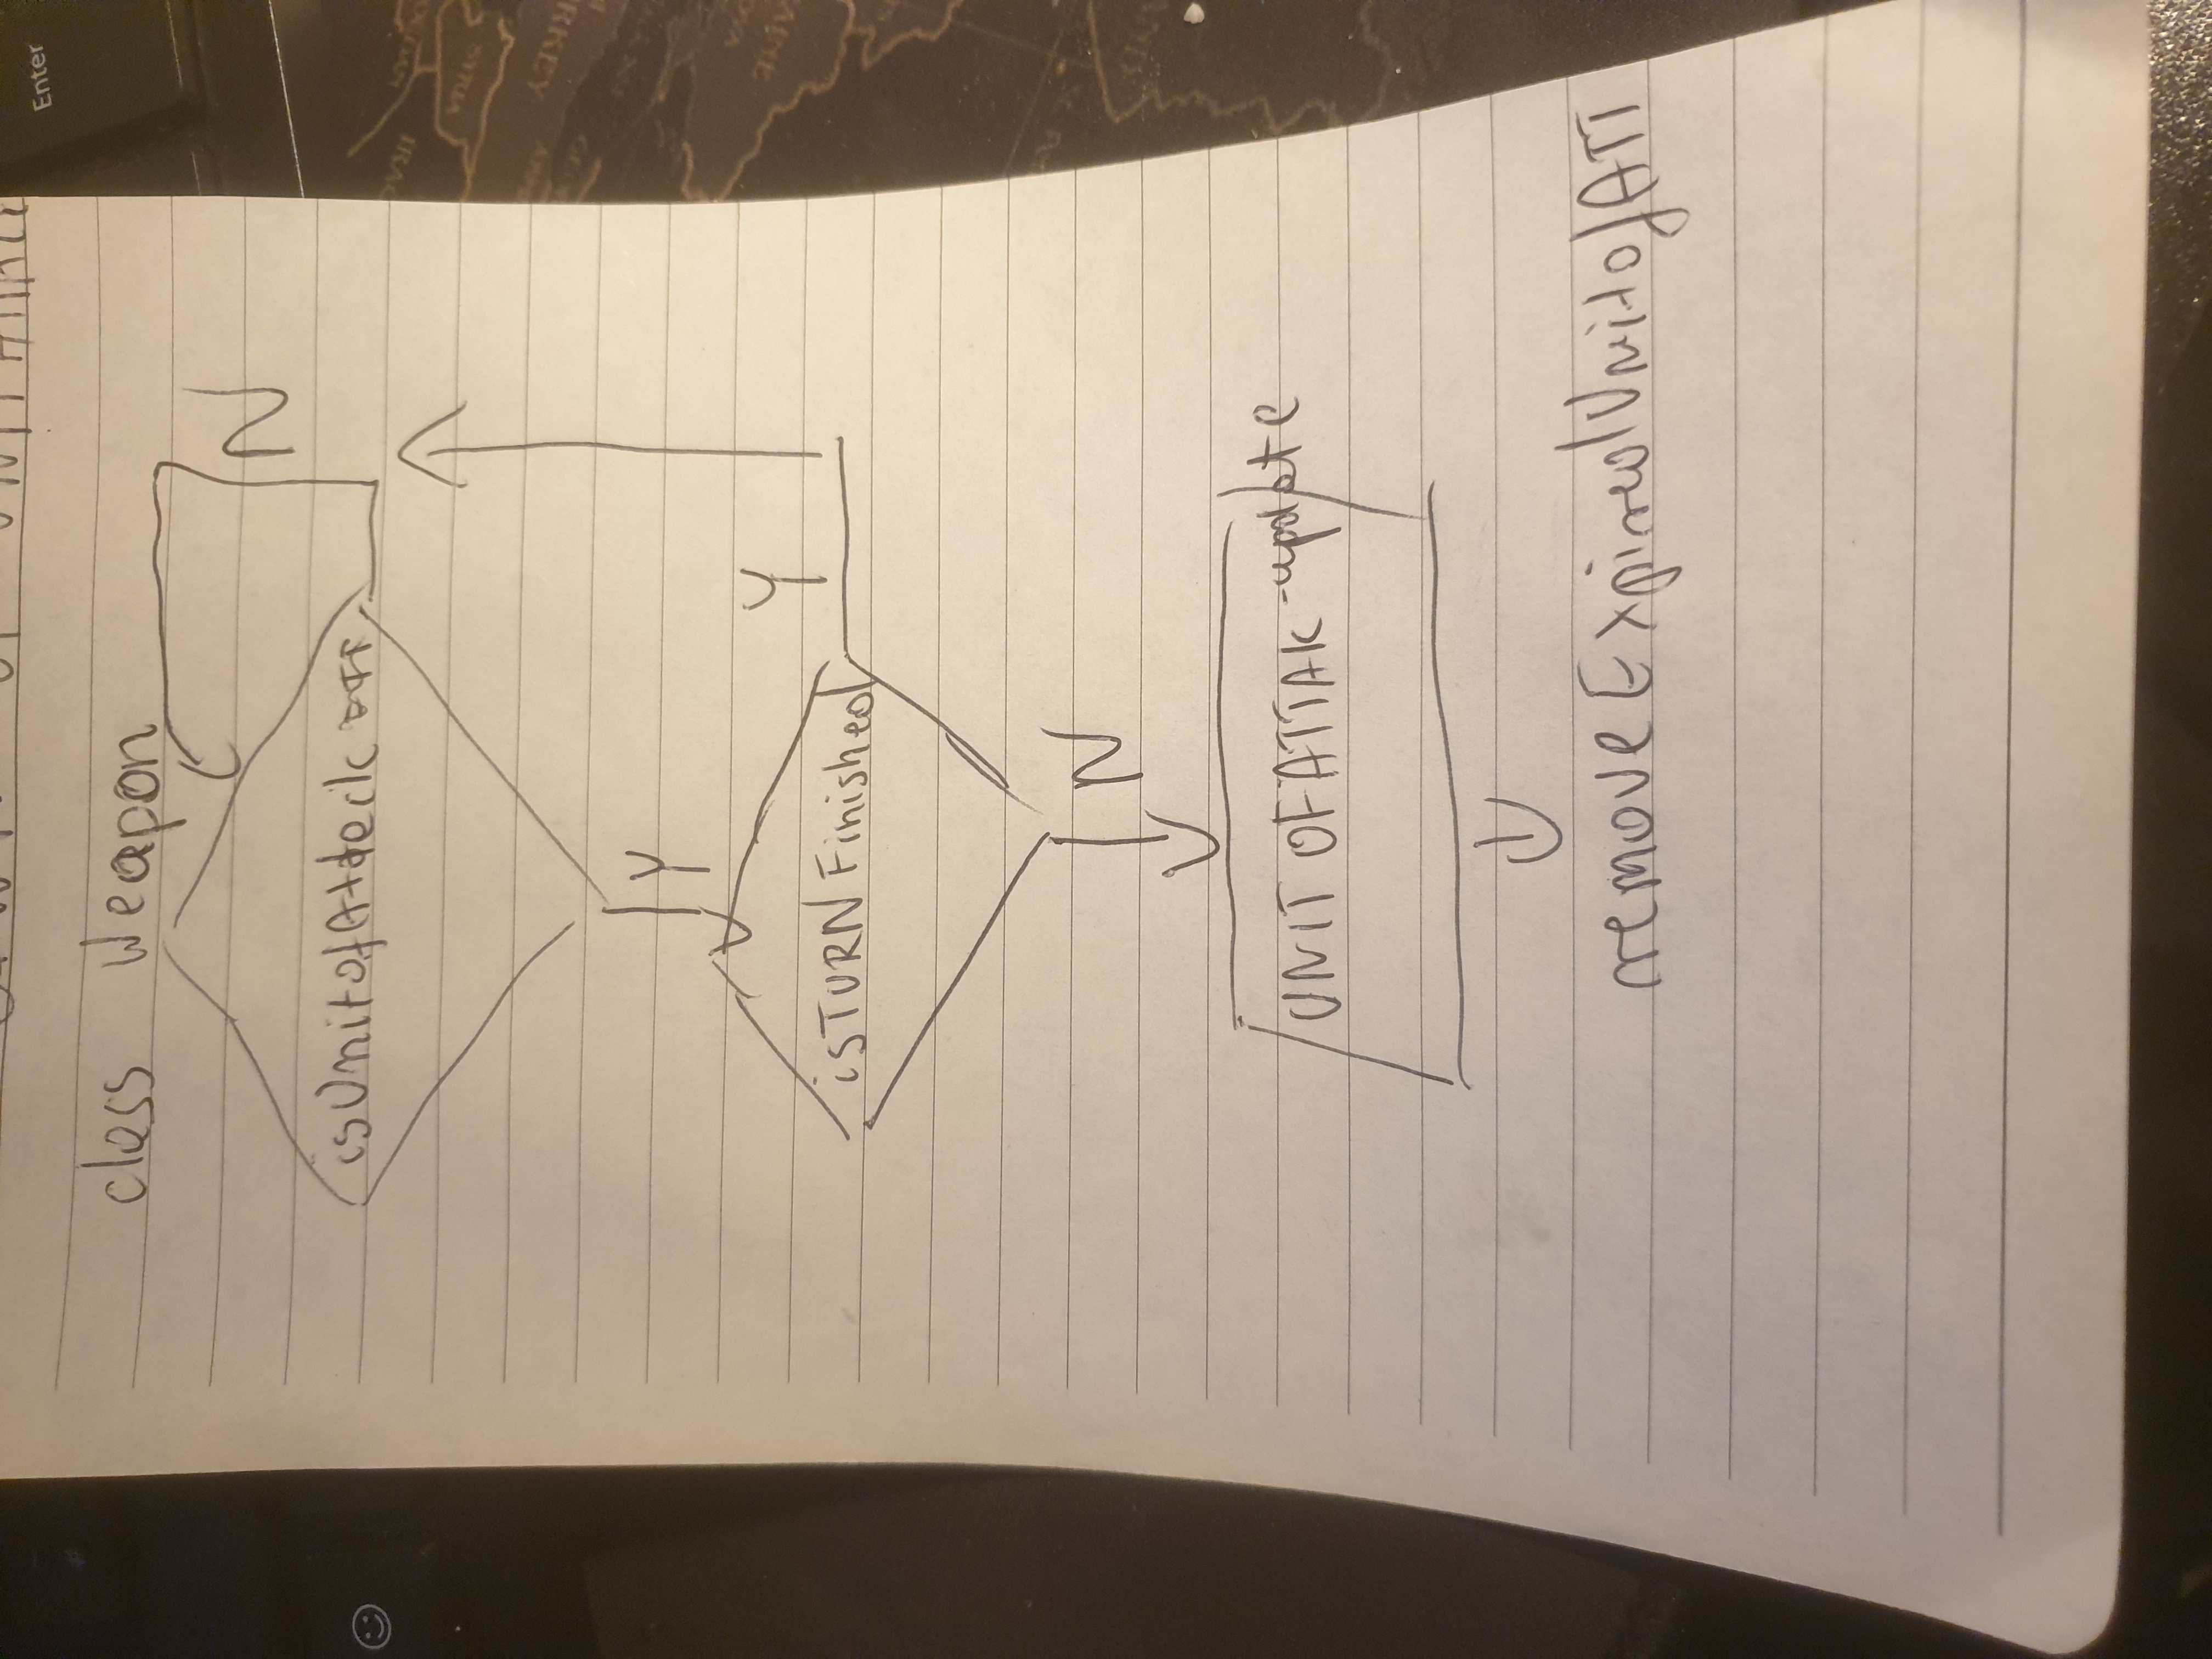 Enter
class Weapon
N
isUnitofAttack
Y
Y
isTURN Finished
N
UNIT OF ATTAK -update
remove Expired UnitofATT